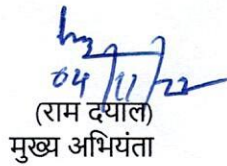 04/11/22
(राम दयाल)
मुख्य अभियंता